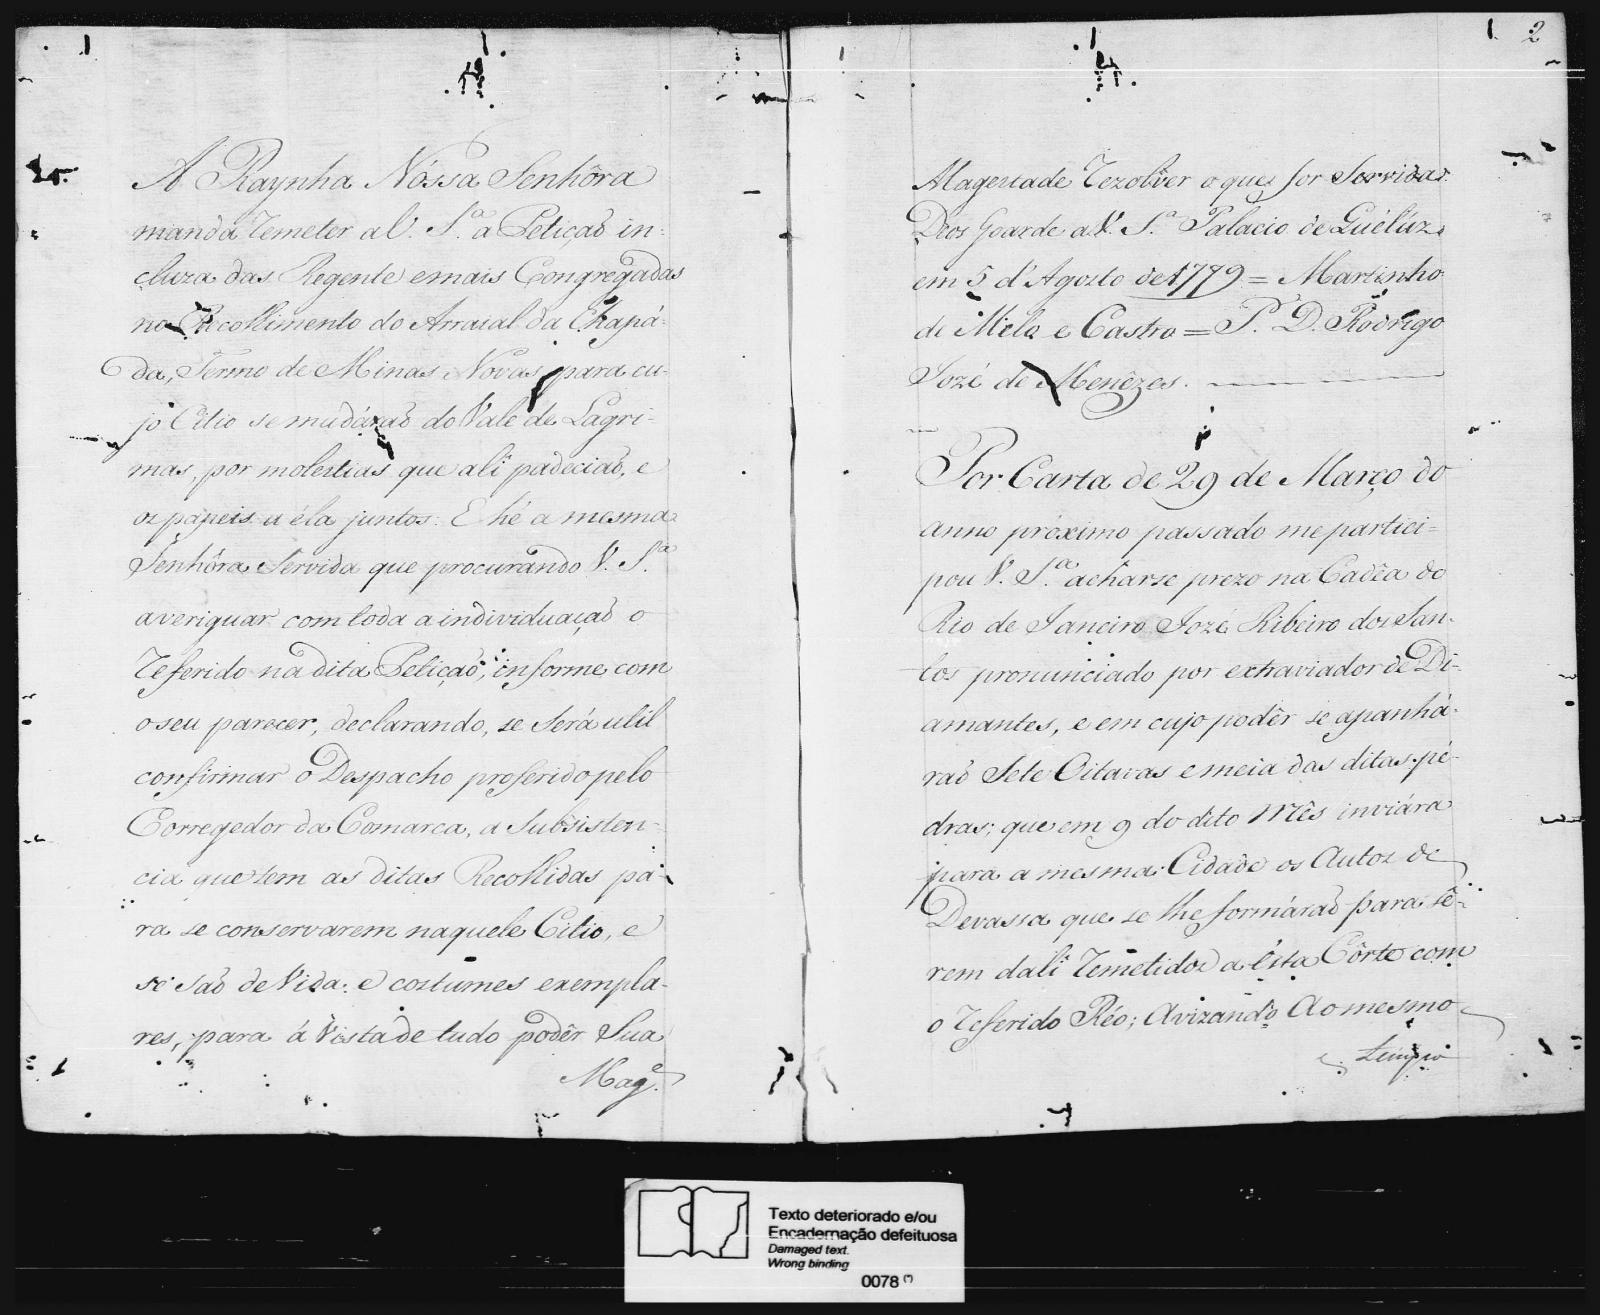 A Raynha Nóssa Senhôra
manda remeter a V. S.ª a Petiçaõ in-
cluza das Regente e mais Congregadas
no Recolhimento do Arraial da Chapá-
da, Termo de Minas Novas, para cu-
jo Citio se mudáraõ do Vale de Lagri-
mas, por molestias que ali padeciaõ, e
os papeis a éla juntos: E hé a mesma
Senhôra Servida que procurando V. S.ª
averiguar com toda a individuaçaõ o
referido na dita Petiçaõ, informe com
o seu parecer, declarando, se Será util
confirmar o Despacho proferido pelo
Corregedor da Comarca, a Subsisten-
cia que tem as ditas Recolhidas pa-
ra se conservarem naquele Citio, e
se saõ de Vida e costumes exempla-
res, para á Vista de tudo podêr Sua
Mag.e
2
Magestade rezolver o que for Servida.
Deos Goarde a V. S.ª Palacio de Quélúz
em 5 d'Agosto de 1779 = Martinho
de Melo e Castro = S. D. Rodrigo
Jozé de Menêzes.
Por Carta de 29 de Março do
anno próximo passado me partici-
pou V. S.ª acharse prezo na Cadêa do
Rio de Janeiro Jozé Ribeiro dos San-
tos pronunciado por extraviador de Di-
amantes, e em cujo podêr se apanhá-
raõ Sete Oitavas e meia das ditas pé-
dras; que em 9 do dito Mês inviára
para a mesma Cidade os Autos de
Devassa que se lhe formáraõ para sê-
rem dali remetidos a ésta Côrte com
o referido Réo; Avizando Ao mesmo
tempo
Texto deteriorado e/ou
Encadernação defeituosa
Damaged text.
Wrong binding
0078 (*)